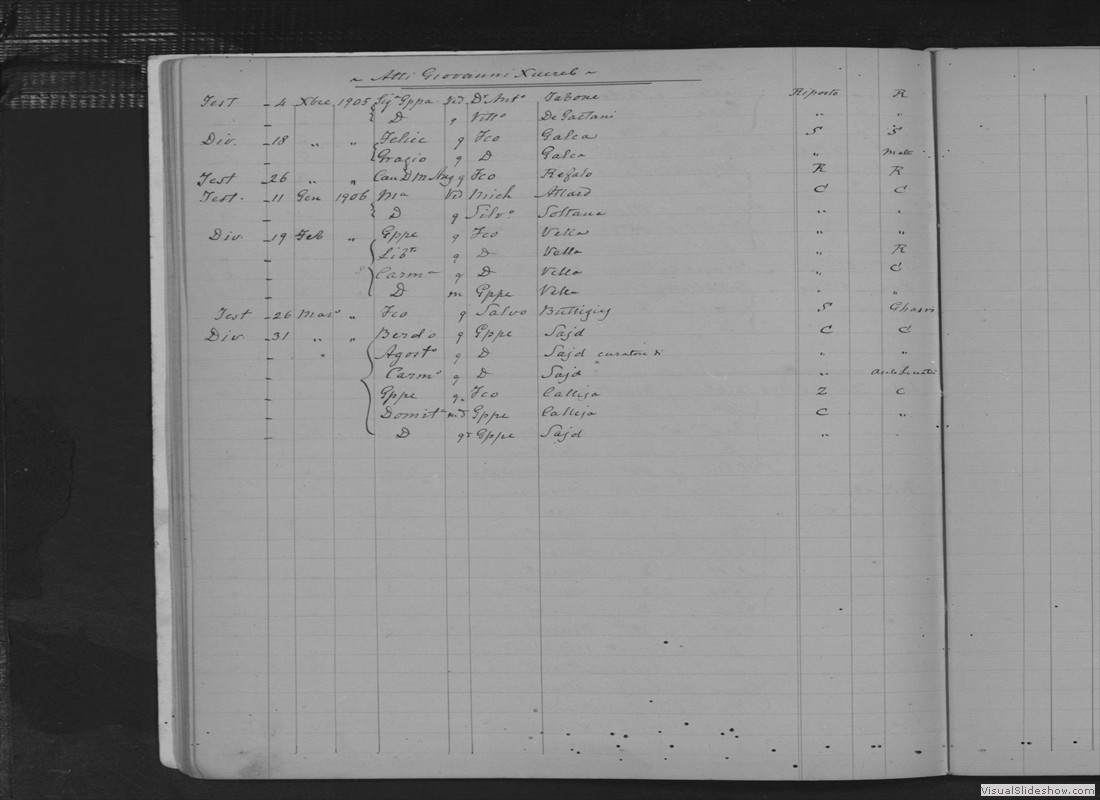 ~ Atti Giovanni Xuereb ~
Test - 4 Xbre 1905 Sig.a Gppa Ved Dr Ant.o Tabone Riposto R
- D q Vitt.o De Gaetani " "
Div. - 18 " " Felice q Fco Galea S S
- Grazio q D Galea "
Test - 26 " " Can D M Ang q Fco Refalo R R
Test. - 11 Gen 1906 Ma Ved Mich Attard C C
- D q Silv.o Soltana " "
Div. - 19 Feb " Gppe q Fco Vella " "
- Lib.ta q D Vella " R
- Carm.a q D Vella " C
- D m Gppe Vella " "
Test - 26 Marzo " Fco q Salvo Buttigieg S Ghasri
Div. - 31 " " Berdo q Gppe Sajd C C
- " Agost.o q D Sajd curatore di " "
- Carm.o q D Sajd "
- Gppe q. Fco Calleja Z C
- Domit.a Gppe Calleja C "
- D Gppe Sajd " "
VisualSlideshow.com